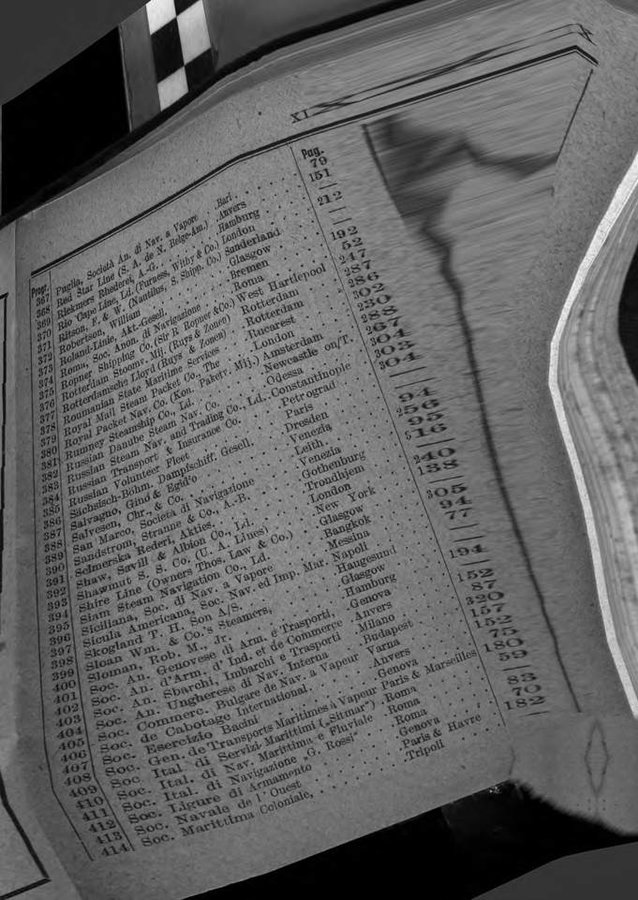 XI
Prog. Pag.
367 Puglia, Società An. di Nav. a Vapore . Bari 79
368 Red Star Line (S. A. de N. Belge-Am.) . Anvers 151
369 Rickmers Rhederei, A.-G. . Hamburg —
370 Rio Cape Line, Ld. (Furness, Withy & Co.) London 212
371 Ritson, F. & W. (Nautilus, S. Shipp. Co.) Sunderland —
372 Robertson, William Glasgow —
373 Roland-Linie, Akt.-Gesell. Bremen 192
374 Roma, Soc. Anon. di Navigazione Roma 52
375 Ropner Shipping Co. (Sir R Ropner & Co.) West Hartlepool 247
376 Rotterdamsche Stoomv. Mij. (Ruys & Zonen) Rotterdam 287
377 Rotterdamsche Lloyd (Ruys & Zonen) Rotterdam 286
378 Roumanian State Maritime Services Bucarest 302
379 Royal Mail Steam Packet Co., The London 230
380 Royal Packet Nav. Co. (Kon. Paketv. Mij.) Amsterdam 288
381 Rumney Steamship Co. Ld. Newcastle on/T. 267
382 Russian Danube Steam Nav. Co. Odessa 304
383 Russian Steam Nav. and Trading Co., Ld. Constantinople 303
384 Russian Transport & Insurance Co. Petrograd 304
385 Russian Volunteer Fleet Paris —
386 Sächsisch-Böhm. Dampfschiff. Gesell. Dresden —
387 Salvagno, Gino & Egidio Venezia 94
388 Salvesen, Chr., & Co. Leith. 256
389 San Marco, Società di Navigazione Venezia 95
390 Sandstrom, Stranne & Co., A.-B. Gothenburg 316
391 Selmerska Rederi, Akties. Trondhjem —
392 Shaw, Savill & Albion Co., Ld. London 240
393 Shawmut S. S. Co. (U. A. Lines) New York 138
394 Shire Line (Owners Thos. Law & Co.) Glasgow —
395 Siam Steam Navigation Co., Ld. Bangkok 305
396 Siciliana, Soc. di Nav. a Vapore Messina 94
397 Sicula Americana, Soc. Nav. ed Imp. Mar. Napoli 77
398 Skogland T. H. Son A/S. Haugesund —
399 Sloan Wm. & Co.'s Steamers, Glasgow —
400 Sloman, Rob. M., Jr. Hamburg 194
401 Soc. An. Genovese di Arm. e Trasporti, Genova —
402 Soc. An. d'Arm. d'Ind. et de Commerce Anvers 152
403 Soc. An. Sbarchi, Imbarchi e Trasporti Milano 87
404 Soc. An. Ungherese di Nav. Interna Budapest 320
405 Soc. Commerc. Bulgare de Nav. a Vapeur Varna 157
406 Soc. de Cabotage International Anvers 152
407 Soc. Esercizio Bacini Genova 75
408 Soc. Gen. de Transports Maritimes à Vapeur Paris & Marseilles 180
409 Soc. Ital. di Servizi Marittimi („Sitmar“) Roma 59
410 Soc. Ital. di Nav. Marittima e Fluviale Roma —
411 Soc. Ital. di Navigazione „G. Rossi“ Roma 83
412 Soc. Ligure di Armamento Genova 70
413 Soc. Navale de l'Ouest Paris & Havre 182
414 Soc. Marittima Coloniale, Tripoli —